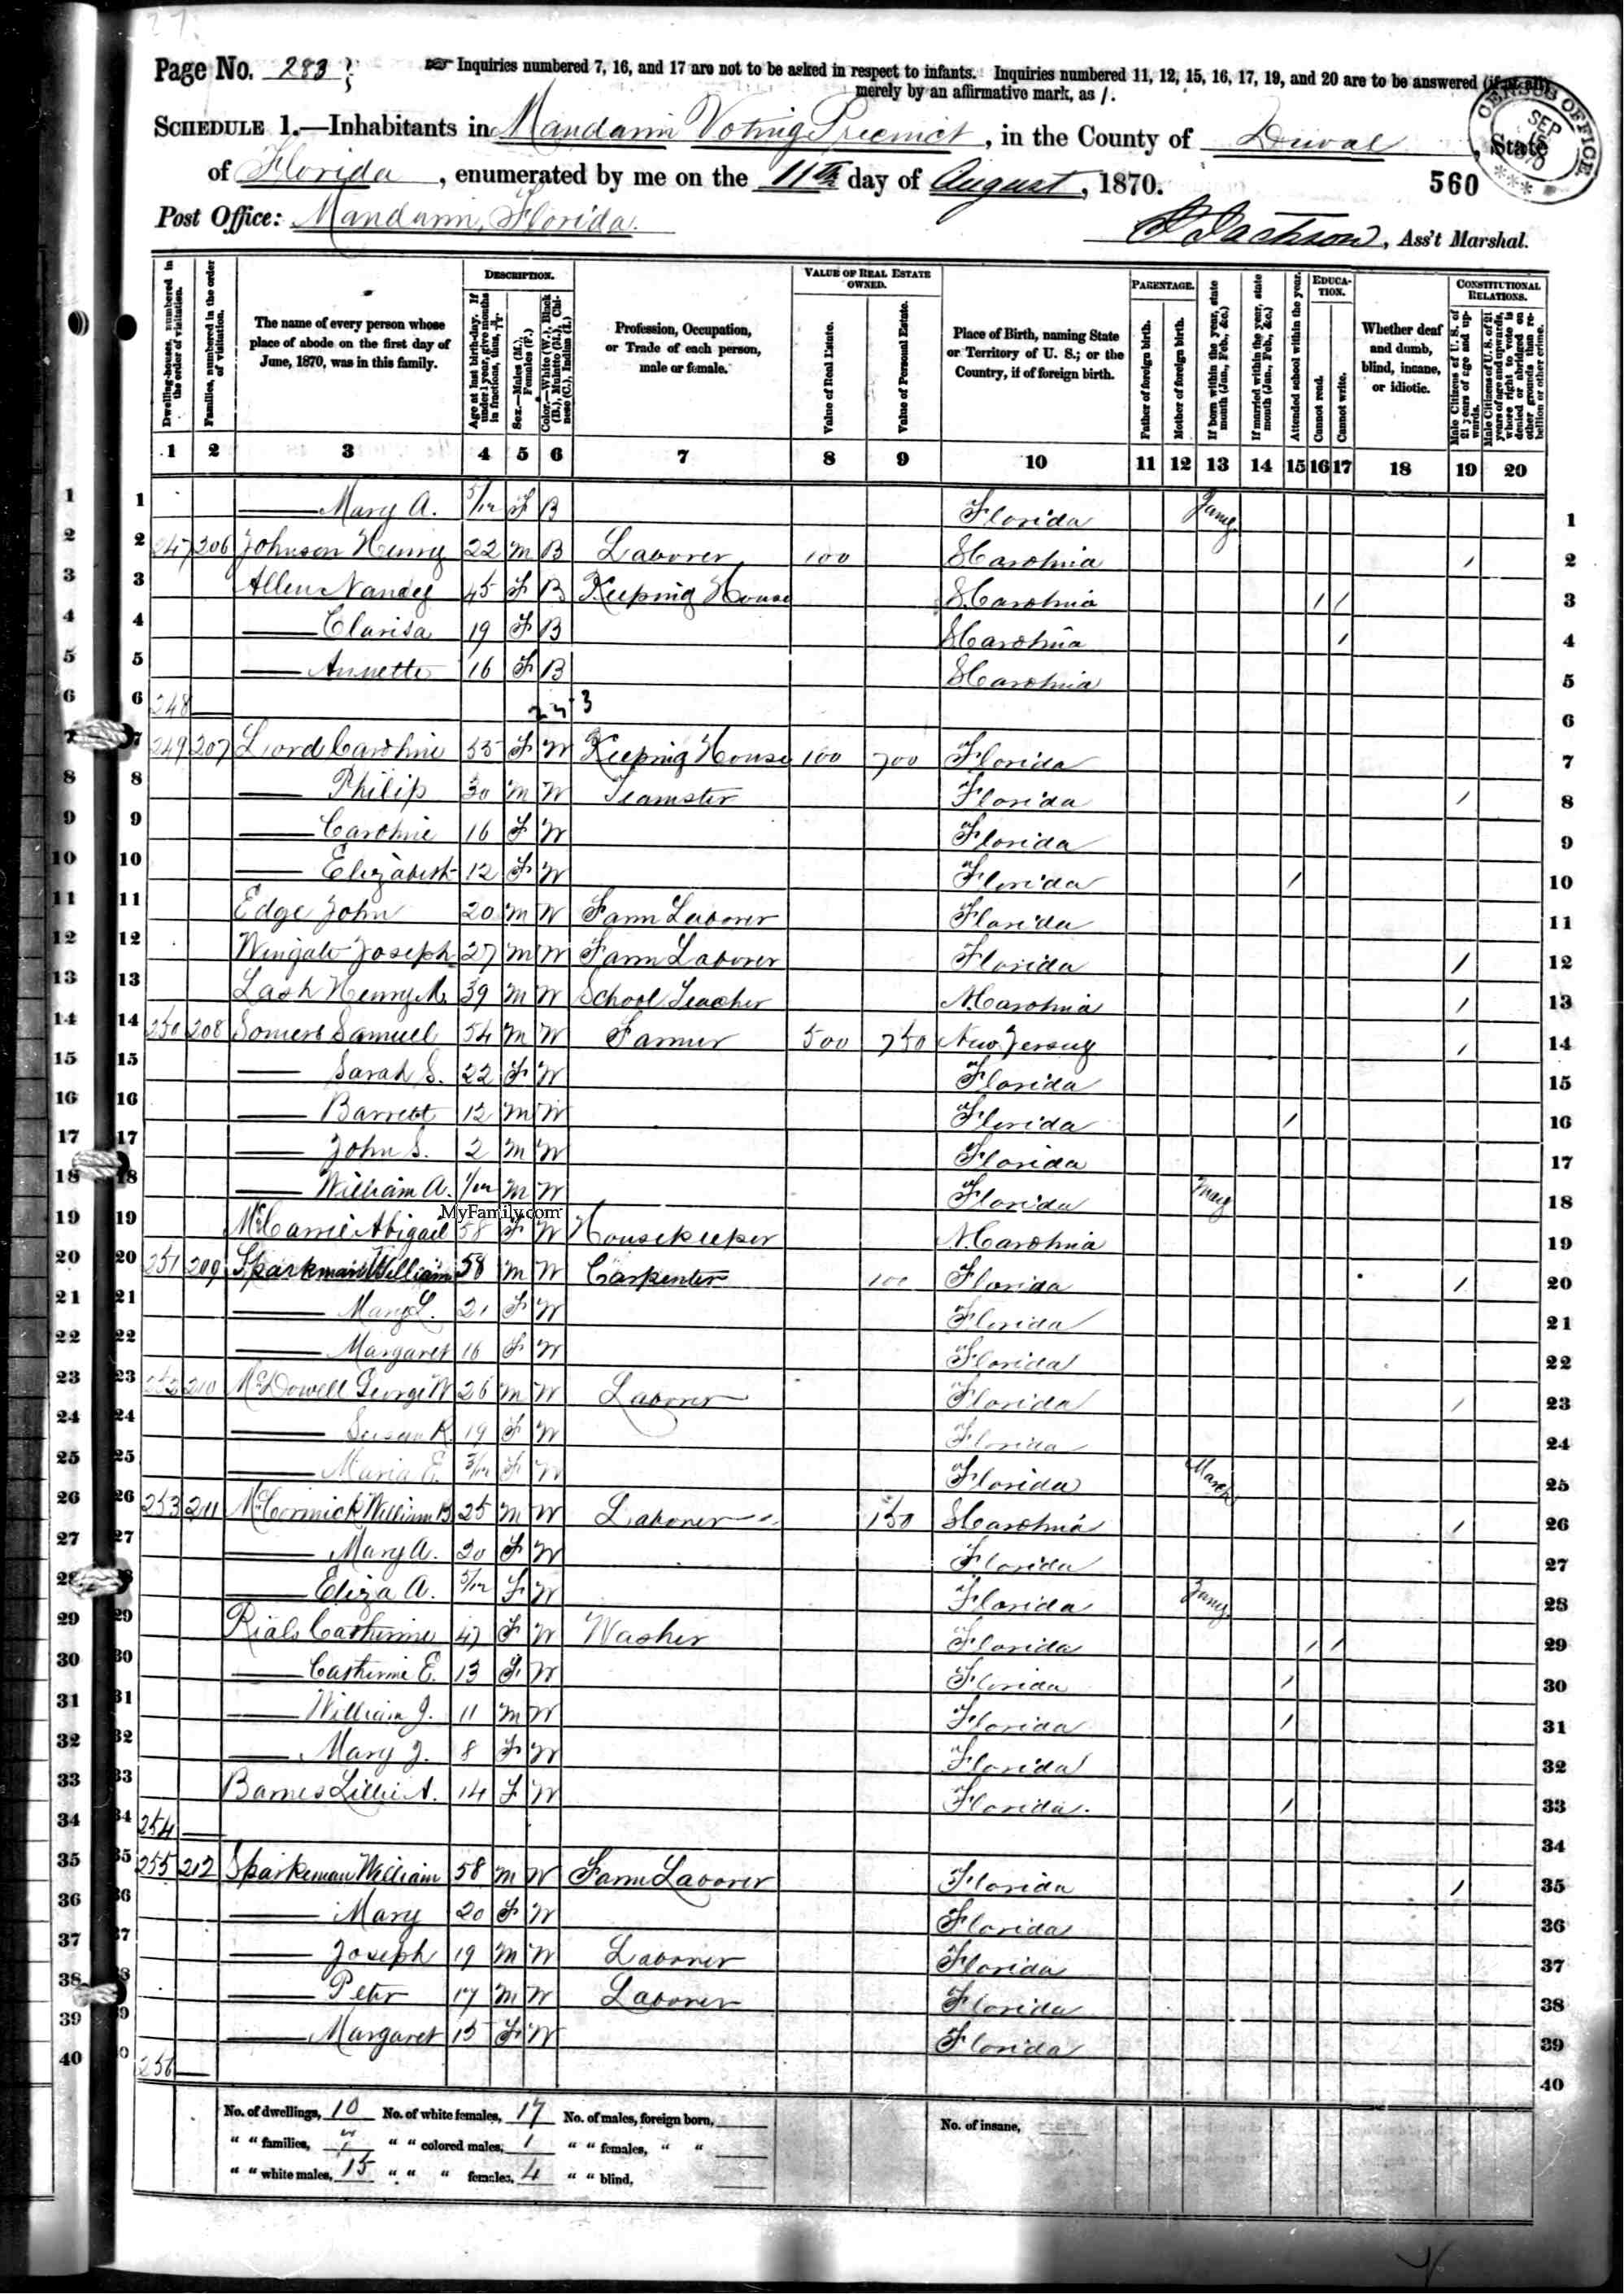 Page No. 283
Inquiries numbered 7, 16, and 17 are not to be asked in respect to infants. Inquiries numbered 11, 12, 15, 16, 17, 19, and 20 are to be answered (if at all)
merely by an affirmative mark, as /.
SCHEDULE 1.—Inhabitants in Mandarin Voting Precinct, in the County of Duval, State
of Florida, enumerated by me on the 11th day of August, 1870.
560
CENSUS OFFICE. SEP 15 1870
Post Office: Mandarin, Florida.
Jackson, Ass't Marshal.
Dwelling-houses, numbered in the order of visitation.
Families, numbered in the order of visitation.
The name of every person whose place of abode on the first day of June, 1870, was in this family.
DESCRIPTION.
Age at last birth-day. If under 1 year, give months in fractions, thus,
Sex.—Males (M.), Females (F.)
Color.—White (W.), Black (B.), Mulatto (M.), Chinese (C.), Indian (I.)
Profession, Occupation, or Trade of each person, male or female.
VALUE OF REAL ESTATE OWNED.
Value of Real Estate.
Value of Personal Estate.
Place of Birth, naming State or Territory of U. S.; or the Country, if of foreign birth.
PARENTAGE.
Father of foreign birth.
Mother of foreign birth.
If born within the year, state month (Jan., Feb., &c.)
If married within the year, state month (Jan., Feb., &c.)
Attended school within the year.
EDUCATION.
Cannot read.
Cannot write.
Whether deaf and dumb, blind, insane, or idiotic.
CONSTITUTIONAL RELATIONS.
Male Citizens of U. S. of 21 years of age and upwards.
Male Citizens of U. S. of 21 years of age and upwards, whose right to vote is denied or abridged on other grounds than rebellion or other crime.
1 2 3 4 5 6 7 8 9 10 11 12 13 14 15 16 17 18 19 20
1 1 — Mary A. 5/12 F B Florida Jany 1
2 2 247 206 Johnson Henry 22 M B Laborer 100 S Carolina / 2
3 3 Allen Nancy 45 F B Keeping House S. Carolina / / 3
4 4 — Clarisa 19 F B S Carolina / 4
5 5 — Annette 16 F B S Carolina 5
6 6 248 — 6
7 7 249 207 Lord Caroline 55 F W Keeping House 100 700 Florida 7
8 8 — Philip 30 M W Teamster Florida / 8
9 9 — Caroline 16 F W Florida 9
10 10 — Elizabeth 12 F W Florida / 10
11 11 Edge John 20 M W Farm Laborer Florida 11
12 12 Wingate Joseph 27 M W Farm Laborer Florida / 12
13 13 Lash Henry 39 M W School Teacher N. Carolina / 13
14 14 250 208 Somers Samuel 54 M W Farmer 500 750 New Jersey / 14
15 15 — Sarah S. 22 F W Florida 15
16 16 — Barrett 12 M W Florida / 16
17 17 — John S. 2 M W Florida 17
18 18 — William A. 1/12 M W Florida May 18
MyFamily.com
19 19 Abigail 58 F W Housekeeper N. Carolina 19
20 20 251 209 Sparkman William 58 M W Carpenter 100 Florida / 20
21 21 — Mary L. 21 F W Florida 21
22 22 — Margaret 16 F W Florida 22
23 23 252 210 McDowell George W 26 M W Laborer Florida / 23
24 24 — Susan R. 19 F W Florida 24
25 25 — Maria E. 3/12 F W Florida March 25
26 26 253 211 McCormick William B 25 M W Laborer 150 S Carolina / 26
27 27 — Mary A. 20 F W Florida 27
28 — Eliza A. 5/12 F W Florida Jany 28
29 29 Rials Catherine 47 F W Washer Florida / / 29
30 30 — Catherine E. 13 F W Florida / 30
31 31 — William J. 11 M W Florida / 31
32 32 — Mary J. 8 F W Florida 32
33 33 Barnes Lillie A. 14 F W Florida. / 33
34 34 254 — 34
35 35 255 212 Sparkeman William 58 M W Farm Laborer Florida / 35
36 36 — Mary 20 F W Florida 36
37 37 — Joseph 19 M W Laborer Florida 37
38 38 — Peter 17 M W Laborer Florida 38
39 39 — Margaret 15 F W Florida 39
40 40 256 — 40
No. of dwellings, 10 No. of white females, 17 No. of males, foreign born, No. of insane,
" " families, 7 " " colored males, 1 " " females, " "
" " white males, 15 " " " females, 4 " " blind,